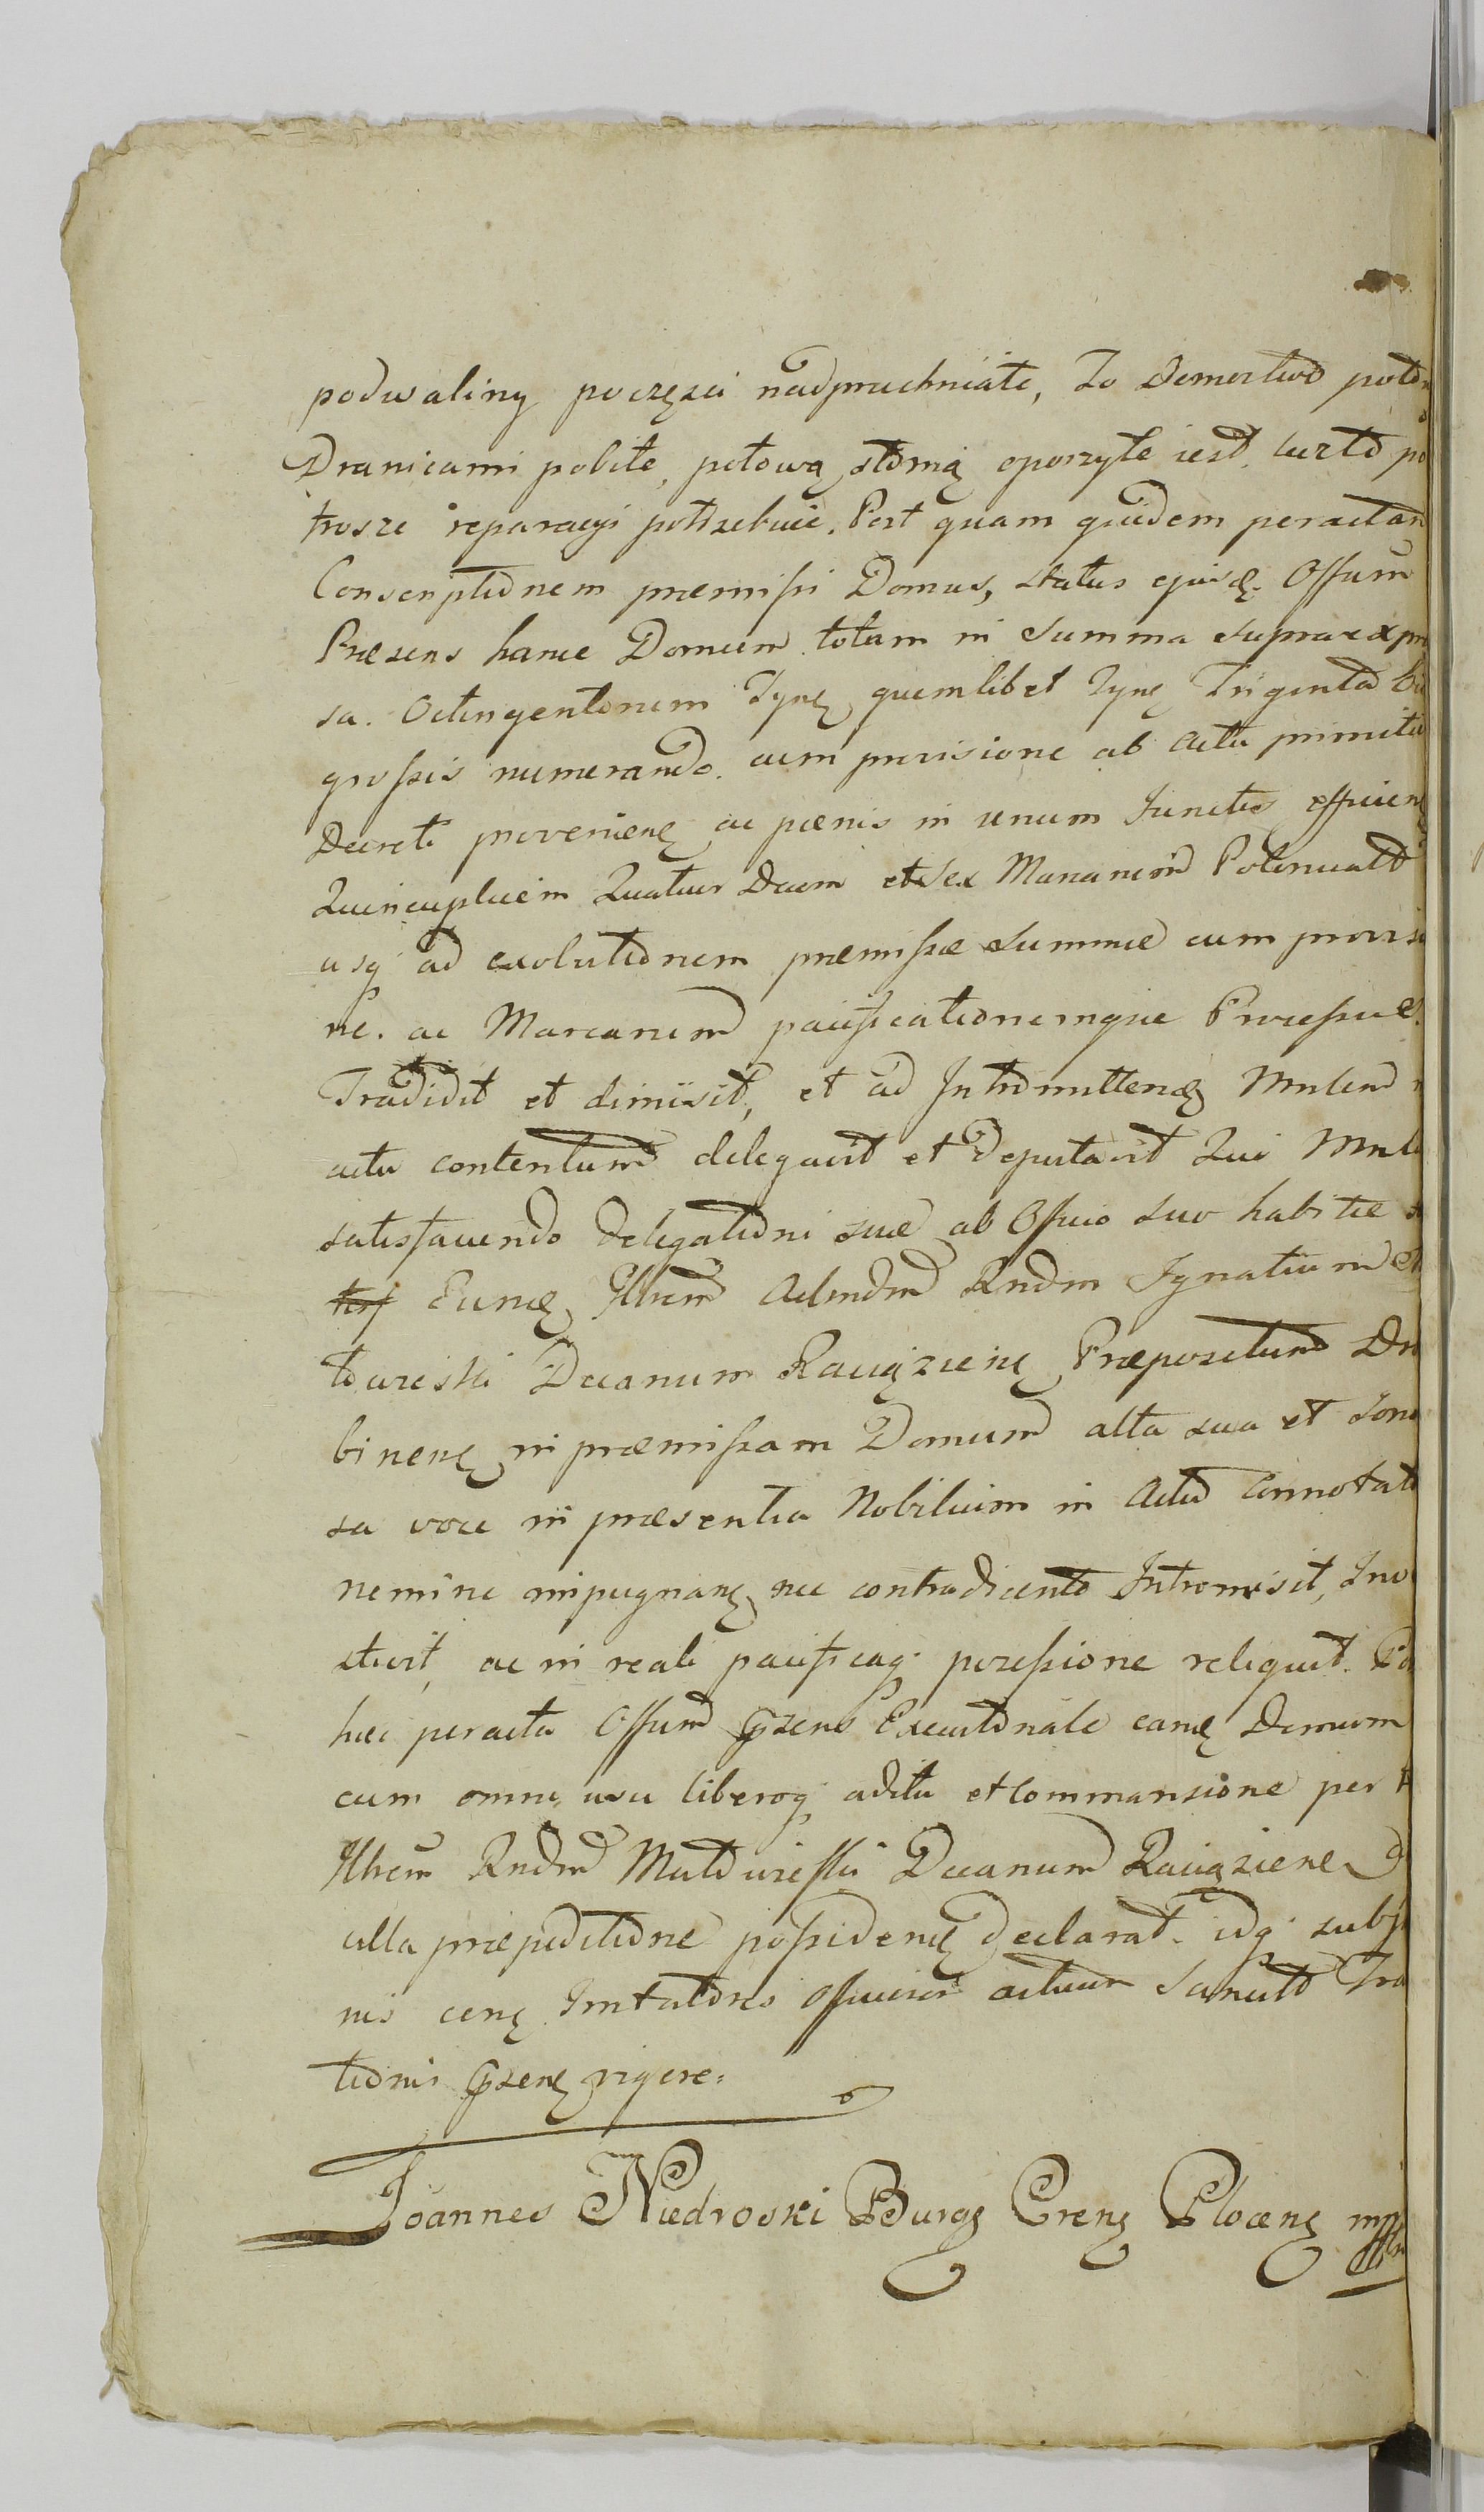 podwaliny poczęsci nadpruchniałe, To Domostwo poło
Dranicami pobite, połową słomą oposzyte iest, lecz to po
trosze reparacyi potrzebuie. Post quam quidem peractam
Conscriptionem præmissi Domus, status ejusd. Offium
Præsens hanc Domum totam in Summa supraexpre
sa. Octingentorum Tynf. quemlibet Tynf Triginta
grossis numerando. cum provisione ab Actu primiti
Decreti provenien. ac pœnis in unum Junctis efficien
Quincuplicem Quatuor Decem et Sex Marcarum Polonicalt
usq ad exolutionem præmissæ Summæ cum provisi
ne. ac Marcarum pacificationemque Processus.
Tradidit et dimisit, et ad Intromittend Mnlem
actu contentum delegavit et Deputavit Qui Mnl
satisfaciendo Delegationi suæ ab Officio suo habitæ
Eund. Illrem Admdm Rndm Ignatium
towieski Decanum Raciązien. Præpositum Dro
binens in præmissam Domum alta sua et Sono
sa voce in præsentia Nobilium in Actu Connotat
nemine impugnan. nec contradicente Intromisit, Inve
stivit, ac in reali pacificaq possessione reliquit. Po
hæc peracta Offium præsens Executionale eand Domum
cum omni usu liberoq aditu et Commansione per
Illrem Rndm Decanum Raciązienem
ulla præpeditione possidend declarat. idq sub pœ
nis cen. Irritatores officiosor actuum Sancito
tionis præsen. vigore.
Joannes Niedroski Burg Cren Plocen mpp